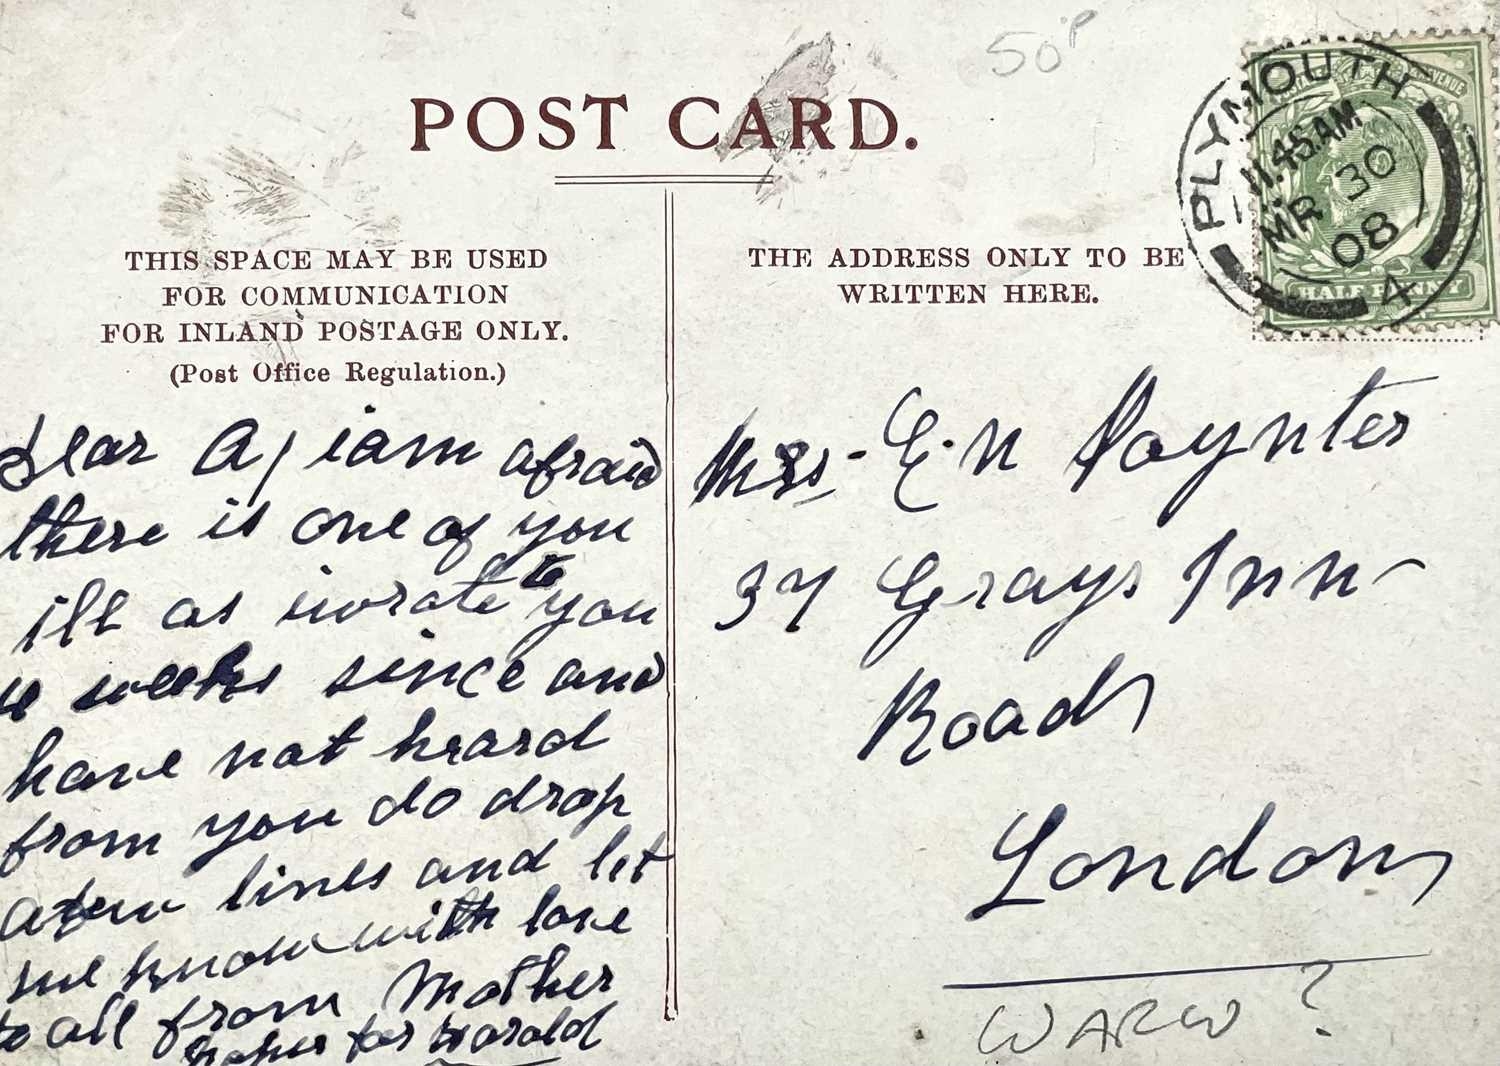 50P
POST CARD.
PLYMOUTH
11.45AM
MR 30
08
4
HALF PENNY
THIS SPACE MAY BE USED
FOR COMMUNICATION
FOR INLAND POSTAGE ONLY.
(Post Office Regulation.)
THE ADDRESS ONLY TO BE
WRITTEN HERE.
Dear A j iam afraid
there is one of you
ill as i wrote to you
weeks since and
have not heard
from you do drop
a few lines and let
me know with love
to all from Mother
for Harold
Mrs - E. N Poynter
37 Grays Inn
Road
London
WARW ?